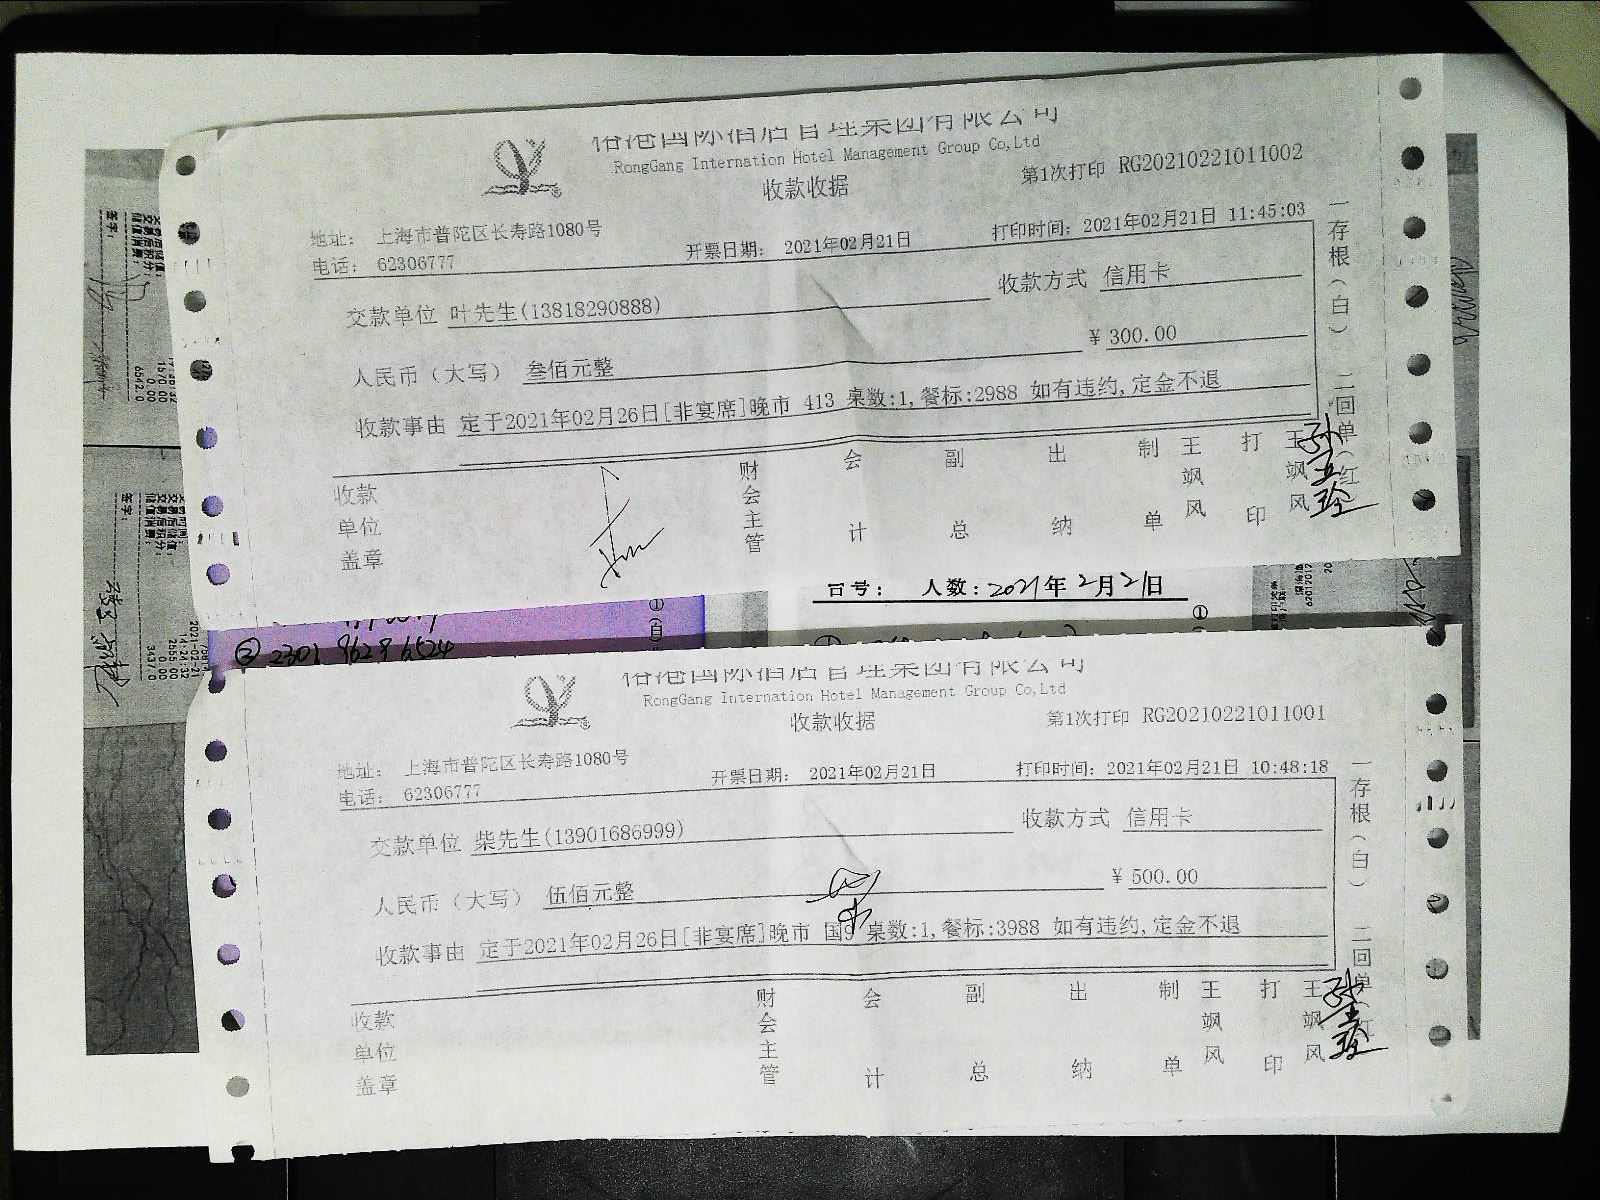 国际酒店管理集团有限公司
RongGang Internation Hotel Management Group Co,Ltd
收款收据
第1次打印 RG20210221011002
地址: 上海市普陀区长寿路1080号
电话: 62306777
开票日期: 2021年02月21日
打印时间: 2021年02月21日 11:45:03
交款单位 叶先生(13818290888)
收款方式 信用卡
人民币(大写) 叁佰元整
¥300.00
收款事由 定于2021年02月26日[非宴席]晚市 413 桌数:1,餐标:2988 如有违约,定金不退
收款单位盖章
财会主管
会计
副总
出纳
制单
王飒风
打印
王飒风
一存根(白) 二回单(红
人数: 2021年2月21日
② 2301 9628 6524
国际酒店管理集团有限公司
RongGang Internation Hotel Management Group Co,Ltd
收款收据
第1次打印 RG20210221011001
地址: 上海市普陀区长寿路1080号
电话: 62306777
开票日期: 2021年02月21日
打印时间: 2021年02月21日 10:48:18
交款单位 柴先生(13901686999)
收款方式 信用卡
人民币(大写) 伍佰元整
¥500.00
收款事由 定于2021年02月26日[非宴席]晚市 国9 桌数:1,餐标:3988 如有违约,定金不退
收款单位盖章
财会主管
会计
副总
出纳
制单
王飒风
打印
王飒风
一存根(白) 二回单(红